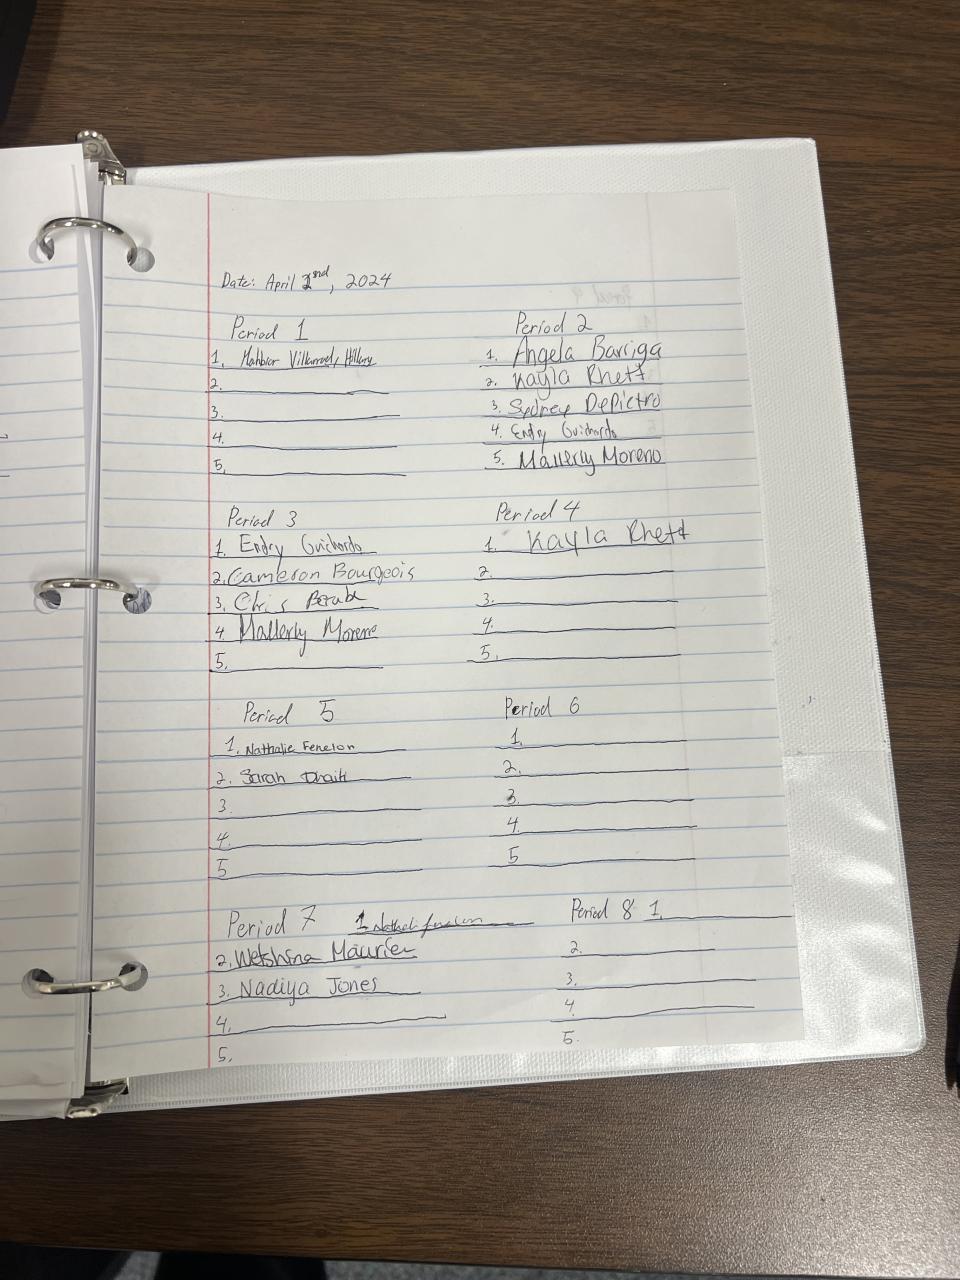 Date: April 2nd, 2024
Period 1
1. Villarroel, Hillary
2.
3.
4.
5.
Period 2
1. Angela Barriga
2. Kayla Rhett
3. Sydney DePietro
4. Endry Guichardo
5. Mallerly Moreno
Period 3
1. Endry Guichardo
2. Cameron Bourgeois
3. Chris Berube
4. Mallerly Moreno
5.
Period 4
1. Kayla Rhett
2.
3.
4.
5.
Period 5
1. Nathalie Fenelon
2. Sarah
3
4.
5
Period 6
1.
2.
3.
4.
5
Period 7 1. Fenelon
2. Maurice
3. Nadiya Jones
4.
5.
Period 8 1.
2.
3.
4.
5.